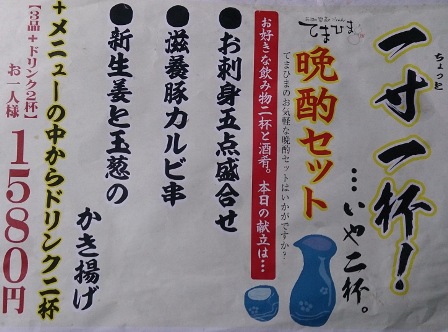 一寸一杯!
ちょっと
…いや二杯。
てまひま
晩酌セット
てまひまのお気軽な晩酌セットはいかがですか?
お好きな飲み物二杯と酒肴。本日の献立は…
●お刺身五点盛合せ
●滋養豚カルビ串
●新生姜と玉葱の
かき揚げ
+メニューの中からドリンク二杯
【3品+ドリンク2杯】
お一人様
1580円